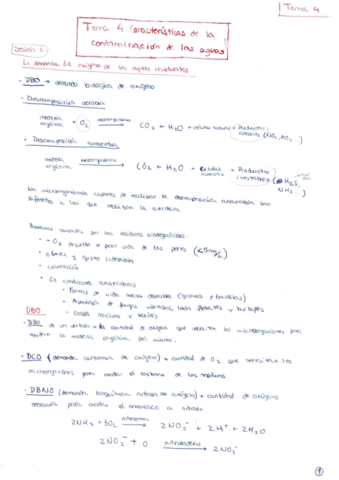 Tema 4
Tema 4: Características de la
contaminación de las aguas
Sesión 1
La demanda de oxígeno de las aguas residuales
· DBO → demanda biológica de oxígeno
· Descomposición aerobia
materia orgánica + O2 microorganismos → CO2 + H2O + células nuevas + Productos estables (NO3, PO4...)
· Descomposición anaerobia
materia orgánica microorganismos → CO2 + H2O + células nuevas + Productos inestables (H2S, NH3...)
Los microorganismos capaces de realizar la descomposición anaerobia son
diferentes a los que realizan la aerobia.
Problemas causados por los residuos biodegradables:
· O2 disuelto → peor vida de los peces (<5mg/L)
· olores y gustos indeseables
· coloración
· En condiciones anaerobias
· Formas de vida menos deseables (gusanos y bacterias)
· Aparición de fangos, lodos flotantes y burbujas
· Gases nocivos y
DBO
· DBO de un = la cantidad de oxígeno que necesitan los microorganismos para
oxidar la materia orgánica del mismo.
· DCO (demanda carbonosa de oxígeno) = cantidad de O2 que necesitan los
microorganismos para oxidar el carbono de los residuos
· DBNO (demanda bioquímica nitrosa de oxígeno) = cantidad de oxígeno
necesaria para oxidar el amoniaco a nitrato
2NH3 + 3O2 → 2NO2⁻ + 2H⁺ + 2H2O
2NO2⁻ + O → 2NO3⁻
1